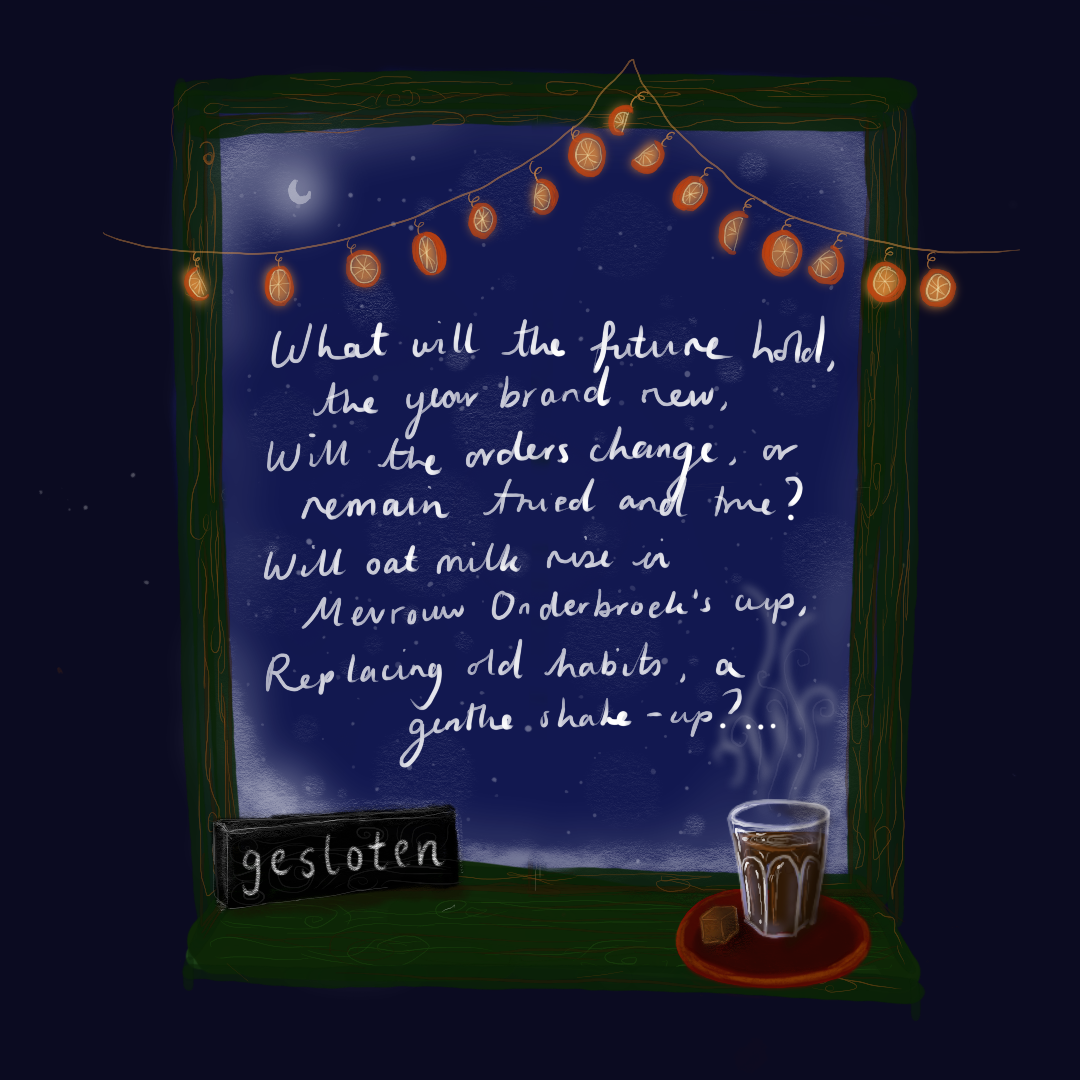 What will the future hold,
the year brand new,
Will the orders change, or
remain tried and true?
Will oat milk rise in
Mevrouw Onderbroek's cup,
Replacing old habits, a
gentle shake-up?...
gesloten